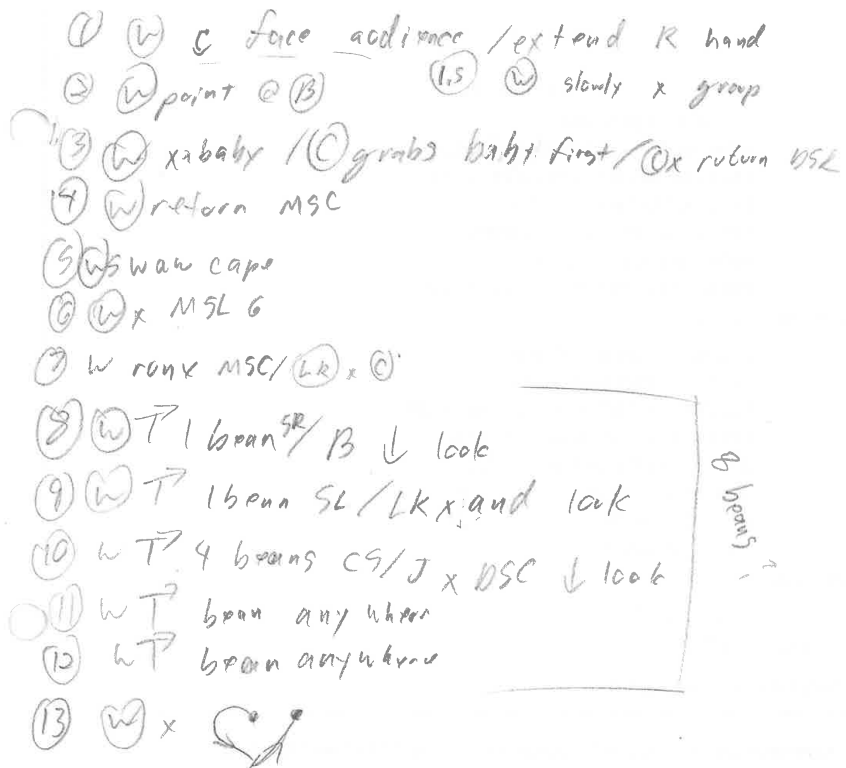 ① Ⓦ C face audience / extend R hand
② Ⓦ point @ Ⓑ (1.5) Ⓦ slowly x group
③ Ⓦ x baby / Ⓒ grabs baby first / Ⓒ x return DSL
④ Ⓦ return MSC
⑤ Ⓦ cape
⑥ Ⓦ x MSL 6
⑦ W x MSC / (LK) x Ⓒ
⑧ Ⓦ T→ 1 bean SR / B ↓ look
⑨ Ⓦ T→ 1 bean SL / LK x and look
⑩ W T→ 4 beans CS / J x DSC ↓ look
⑪ W T→ bean anywhere
⑫ W T→ bean anywhere
8 beans
⑬ Ⓦ x